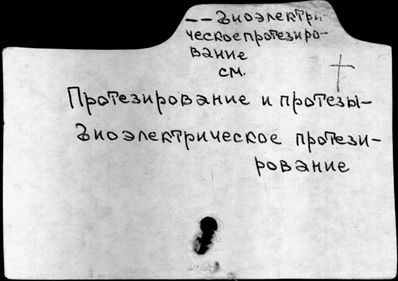 -- Биоэлектри-
ческое протезиро-
вание
см.
Протезирование и протезы-
Биоэлектрическое протези-
рование